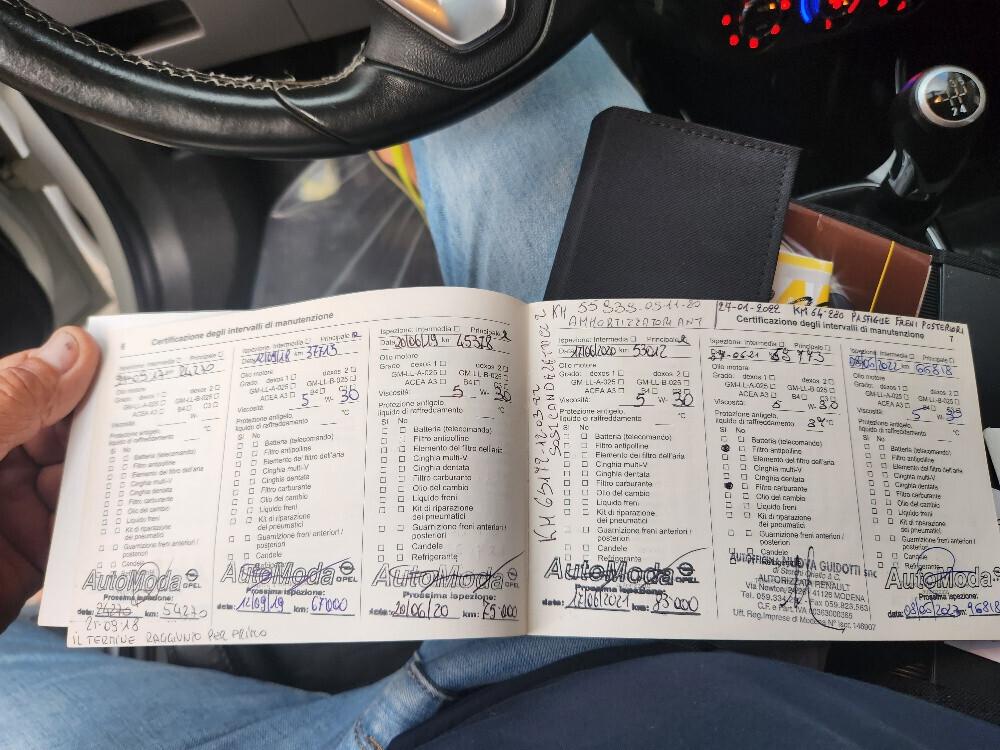 6
Certificazione degli intervalli di manutenzione
Ispezione: Intermedia Principale
24270
Olio motore
Grado: dexos 1 dexos 2
GM-LL-A-025 GM-LL-B-025
ACEA A3 B4 C3
Viscosità: W-
Protezione antigelo,
liquido di raffreddamento °C
Sì No
Batteria (telecomando)
Filtro antipolline
Elemento del filtro dell'aria
Cinghia multi-V
Cinghia dentata
Filtro carburante
Olio del cambio
Liquido freni
Kit di riparazione
dei pneumatici
Guarnizione freni anteriori /
posteriori
Candele
AutoModa OPEL
Prossima ispezione:
data: 24270 km: 54270
21-09-18
IL TERMINE RAGGIUNTO PER PRIMO
Ispezione: Intermedia Principale
Data 12/09/18 km 37713
Olio motore
Grado: dexos 1 dexos 2
GM-LL-A-025 GM-LL-B-025
ACEA A3 B4 C3
Viscosità: 5 W- 30
Protezione antigelo,
liquido di raffreddamento °C
Sì No
Batteria (telecomando)
Filtro antipolline
Elemento del filtro dell'aria
Cinghia multi-V
Cinghia dentata
Filtro carburante
Olio del cambio
Liquido freni
Kit di riparazione
dei pneumatici
Guarnizione freni anteriori /
posteriori
Candele
AutoModa OPEL
Prossima ispezione:
data: 12/09/19 km: 67000
Ispezione: Intermedia Principale
Data 20/06/19 km 45378
Olio motore
Grado: dexos 1 dexos 2
GM-LL-A-025 GM-LL-B-025
ACEA A3 B4 C3
Viscosità: 5 W- 30
Protezione antigelo,
liquido di raffreddamento °C
Sì No
Batteria (telecomando)
Filtro antipolline
Elemento del filtro dell'aria
Cinghia multi-V
Cinghia dentata
Filtro carburante
Olio del cambio
Liquido freni
Kit di riparazione
dei pneumatici
Guarnizione freni anteriori /
posteriori
Candele
Refrigerante
AutoModa OPEL
Prossima ispezione:
data: 20/06/20 km: 75000
KM 55838-05-11-20
AMMORTIZZATORI ANT
27-01-2022 KM 64280 PASTIGLIE FRENI POSTERIORI
Certificazione degli intervalli di manutenzione
7
Ispezione: Intermedia Principale
Data 17/06/2020 km 53012
Olio motore
Grado: dexos 1 dexos 2
GM-LL-A-025 GM-LL-B-025
ACEA A3 B4 C3
Viscosità: 5 W- 30
Protezione antigelo,
liquido di raffreddamento °C
Sì No
Batteria (telecomando)
Filtro antipolline
Elemento del filtro dell'aria
Cinghia multi-V
Cinghia dentata
Filtro carburante
Olio del cambio
Liquido freni
Kit di riparazione
dei pneumatici
Guarnizione freni anteriori /
posteriori
Candele
Refrigerante
AutoModa OPEL
Prossima ispezione:
data: 17/06/2021 km: 83000
Ispezione: Intermedia Principale
Olio motore
Grado: dexos 1 dexos 2
GM-LL-A-025 GM-LL-B-025
ACEA A3 B4 C3
Viscosità: 5 W- 30
Protezione antigelo,
liquido di raffreddamento 37°C
Sì No
Batteria (telecomando)
Filtro antipolline
Elemento del filtro dell'aria
Cinghia multi-V
Cinghia dentata
Filtro carburante
Olio del cambio
Liquido freni
Kit di riparazione
dei pneumatici
Guarnizione freni anteriori /
posteriori
Candele
AUTOFFICINA NUOVA GUIDOTTI snc
AUTORIZZATA RENAULT
Via Newton, 41126 MODENA
Fax 059.823.563
C.F. e Part. IVA 00363000365
Uff. Reg. Imprese di Modena N° Iscr. 146907
Ispezione: Intermedia Principale
km 66818
Olio motore
Grado: dexos 1 dexos 2
GM-LL-A-025 GM-LL-B-025
ACEA A3 B4 C3
Viscosità: 5 W- 30
Protezione antigelo,
liquido di raffreddamento °C
Sì No
Batteria (telecomando)
Filtro antipolline
Elemento del filtro dell'aria
Cinghia multi-V
Cinghia dentata
Filtro carburante
Olio del cambio
Liquido freni
Kit di riparazione
dei pneumatici
Guarnizione freni
posteriori
Candele
AutoModa
Prossima ispezione:
km: 96818